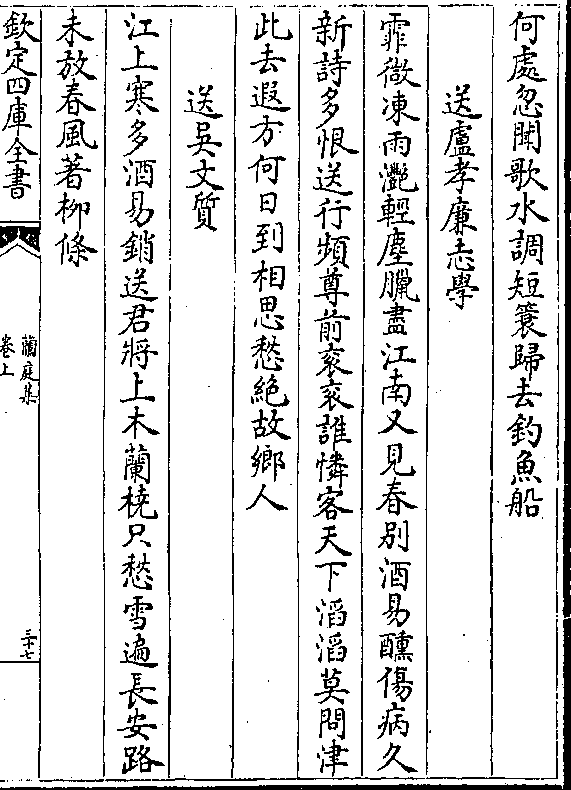 何處忽聞歌水調短簑歸去釣魚船
送盧孝廉志學
霏微凍雨灔輕塵臘盡江南又見春別酒易醺傷病久
新詩多恨送行頻尊前衮衮誰憐客天下滔滔莫問津
此去遐方何日到相思愁絶故鄉人
送吳文質
江上寒多酒易銷送君將上木蘭橈只愁雪遍長安路
未放春風著柳條
欽定四庫全書
蘭庭集
卷上
三十七